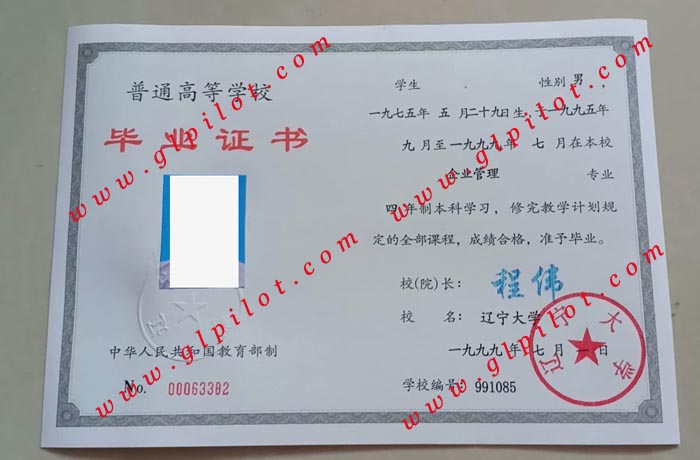 普通高等学校
毕业证书
中华人民共和国教育部制
No. 00063382
学生 性别 男，
一九七五年 五 月二十九日生，于一九九五年
九 月至一九九九年 七 月在本校
企业管理 专业
四 年制本科学习，修完教学计划规
定的全部课程，成绩合格，准予毕业。
校(院)长： 程伟
校 名：辽宁大学
一九九九年 七 月 一 日
学校编号：991085
辽宁大学
www.glpilot.com
www.glpilot.com
www.glpilot.com
www.glpilot.com